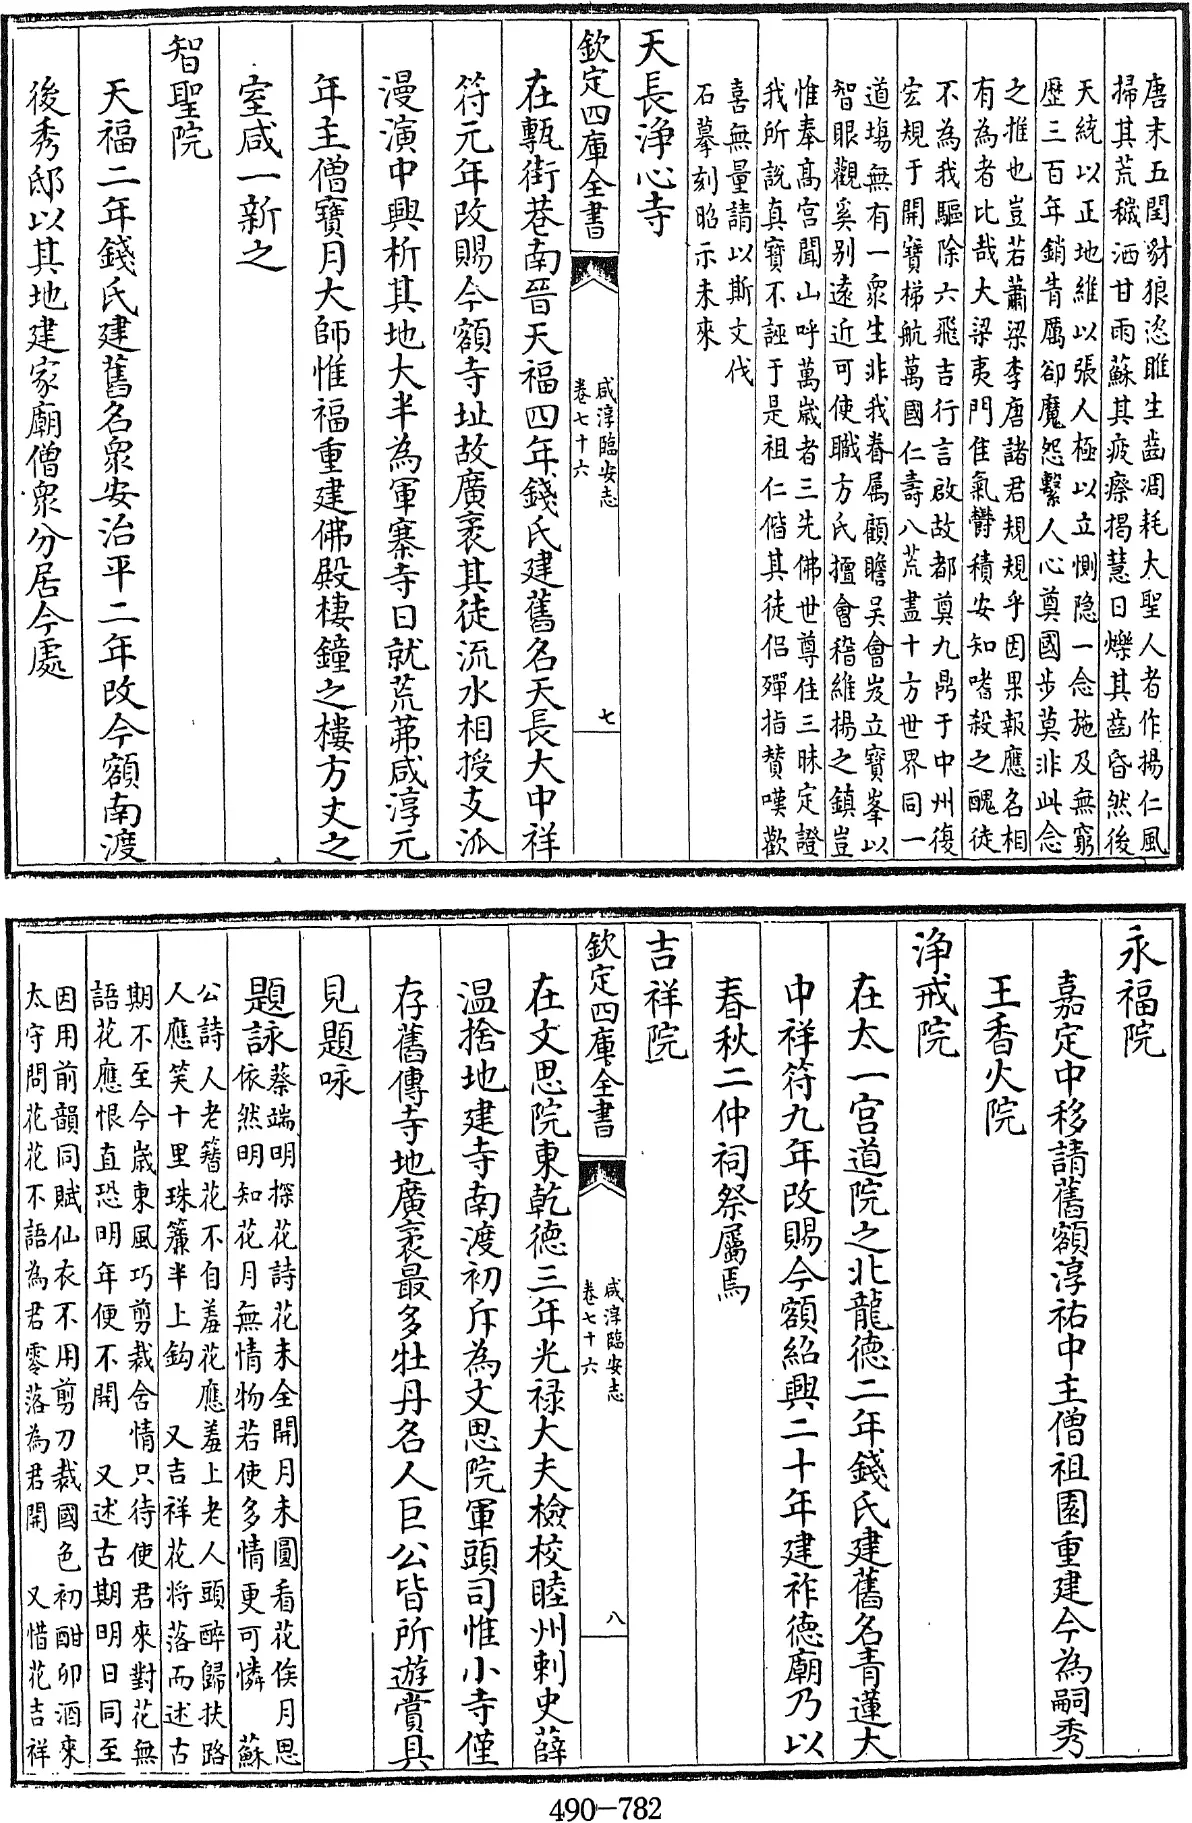 唐末五閏豺狼恣睢生齒凋耗大聖人者作揚仁風
掃其荒穢洒甘雨蘇其疲瘵揭慧日爍其昏然後
天統以正地維以張人極以立惻隐一念施及無窮
歴三百年銷眚厲卻魔怨繫人心奠國步莫非此念
之推也豈若蕭梁李唐諸君規規乎因果報應名相
有為者比哉大梁夷門隹氣欝積安知嗜殺之醜徒
不為我驅除六飛吉行言啟故都奠九鼎于中州復
宏規于開寶梯航萬國仁壽八荒盡十方世界同一
道塲無有一衆生非我眷属顧瞻吴會岌立寶峯以
智眼觀奚别遠近可使職方氏擅會稽維揚之鎮豈
惟奉髙宫聞山呼萬嵗者三先佛世尊住三昧定證
我所說真寶不誣于是祖仁偕其徒侣殫指賛嘆歡
喜無量請以斯文伐
石摹刻昭示未來
天長浄心寺
欽定四庫全書
咸淳臨安志
卷七十六
七
在甎街巷南晉天福四年錢氏建舊名天長大中祥
符元年改賜今額寺址故廣袤其徒流水相授支泒
漫演中興析其地大半為軍寨寺日就荒茀咸淳元
年主僧寶月大師惟福重建佛殿棲鐘之樓方丈之
室咸一新之
智聖院
天福二年錢氏建舊名衆安治平二年改今額南渡
後秀邸以其地建家廟僧衆分居今處
永福院
嘉定中移請舊額淳祐中主僧祖園重建今為嗣秀
王香火院
浄戒院
在太一宫道院之北龍德二年錢氏建舊名青蓮大
中祥符九年改賜今額紹興二十年建祚德廟乃以
春秋二仲祠祭屬焉
吉祥院
欽定四庫全書
咸淳臨安志
卷七十六
八
在文思院東乾德三年光禄大夫檢校睦州刺史薛
温捨地建寺南渡初斥為文思院軍頭司惟小寺僅
存舊傳寺地廣袤最多牡丹名人巨公皆所遊賞具
見題咏
題詠
蔡端明探花詩花未全開月未圓看花俟月思
依然明知花月無情物若使多情更可憐　蘇
公詩人老簪花不自羞花應羞上老人頭醉歸扶路
人應笑十里珠簾半上鈎　又吉祥花将落而述古
期不至今嵗東風巧剪裁含情只待使君來對花無
語花應恨直恐明年便不開　又述古期明日同至
因用前韻同賦仙衣不用剪刀裁國色初酣卯酒來
太守問花花不語為君零落為君開　又惜花吉祥
490-782